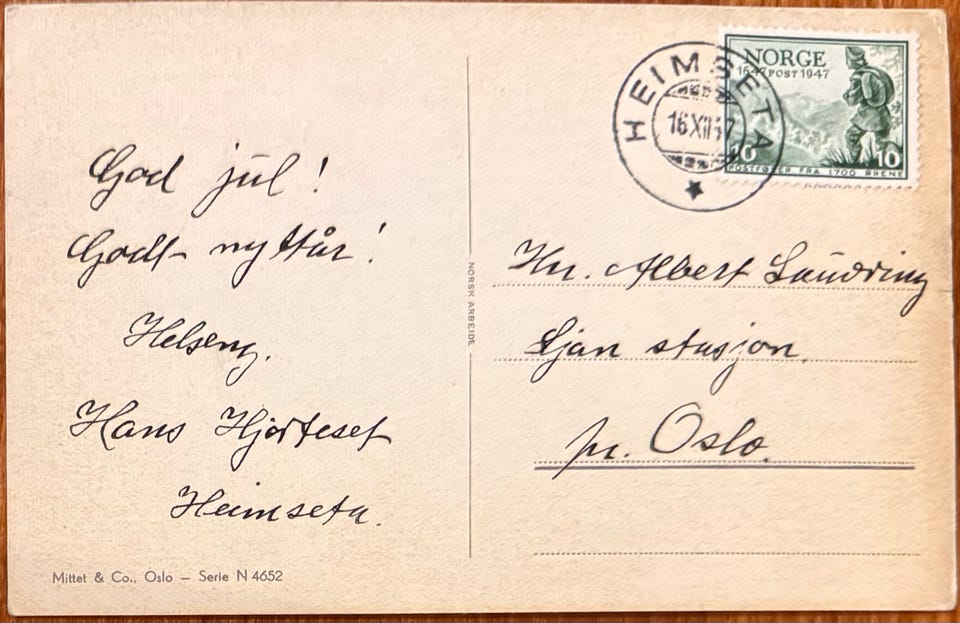 God jul!
Godt nyttår!
Helseng.
Hans Hjorteset
Heimseta.
Mittet & Co., Oslo — Serie N 4652
NORSK ARBEIDE
HEIMSETA
16 XII 47
NORGE
1647 POST 1947
10 10
POSTFØRER FRA 1700 ÅRENE
Hr. Albert
Ljan stasjon.
pr. Oslo.